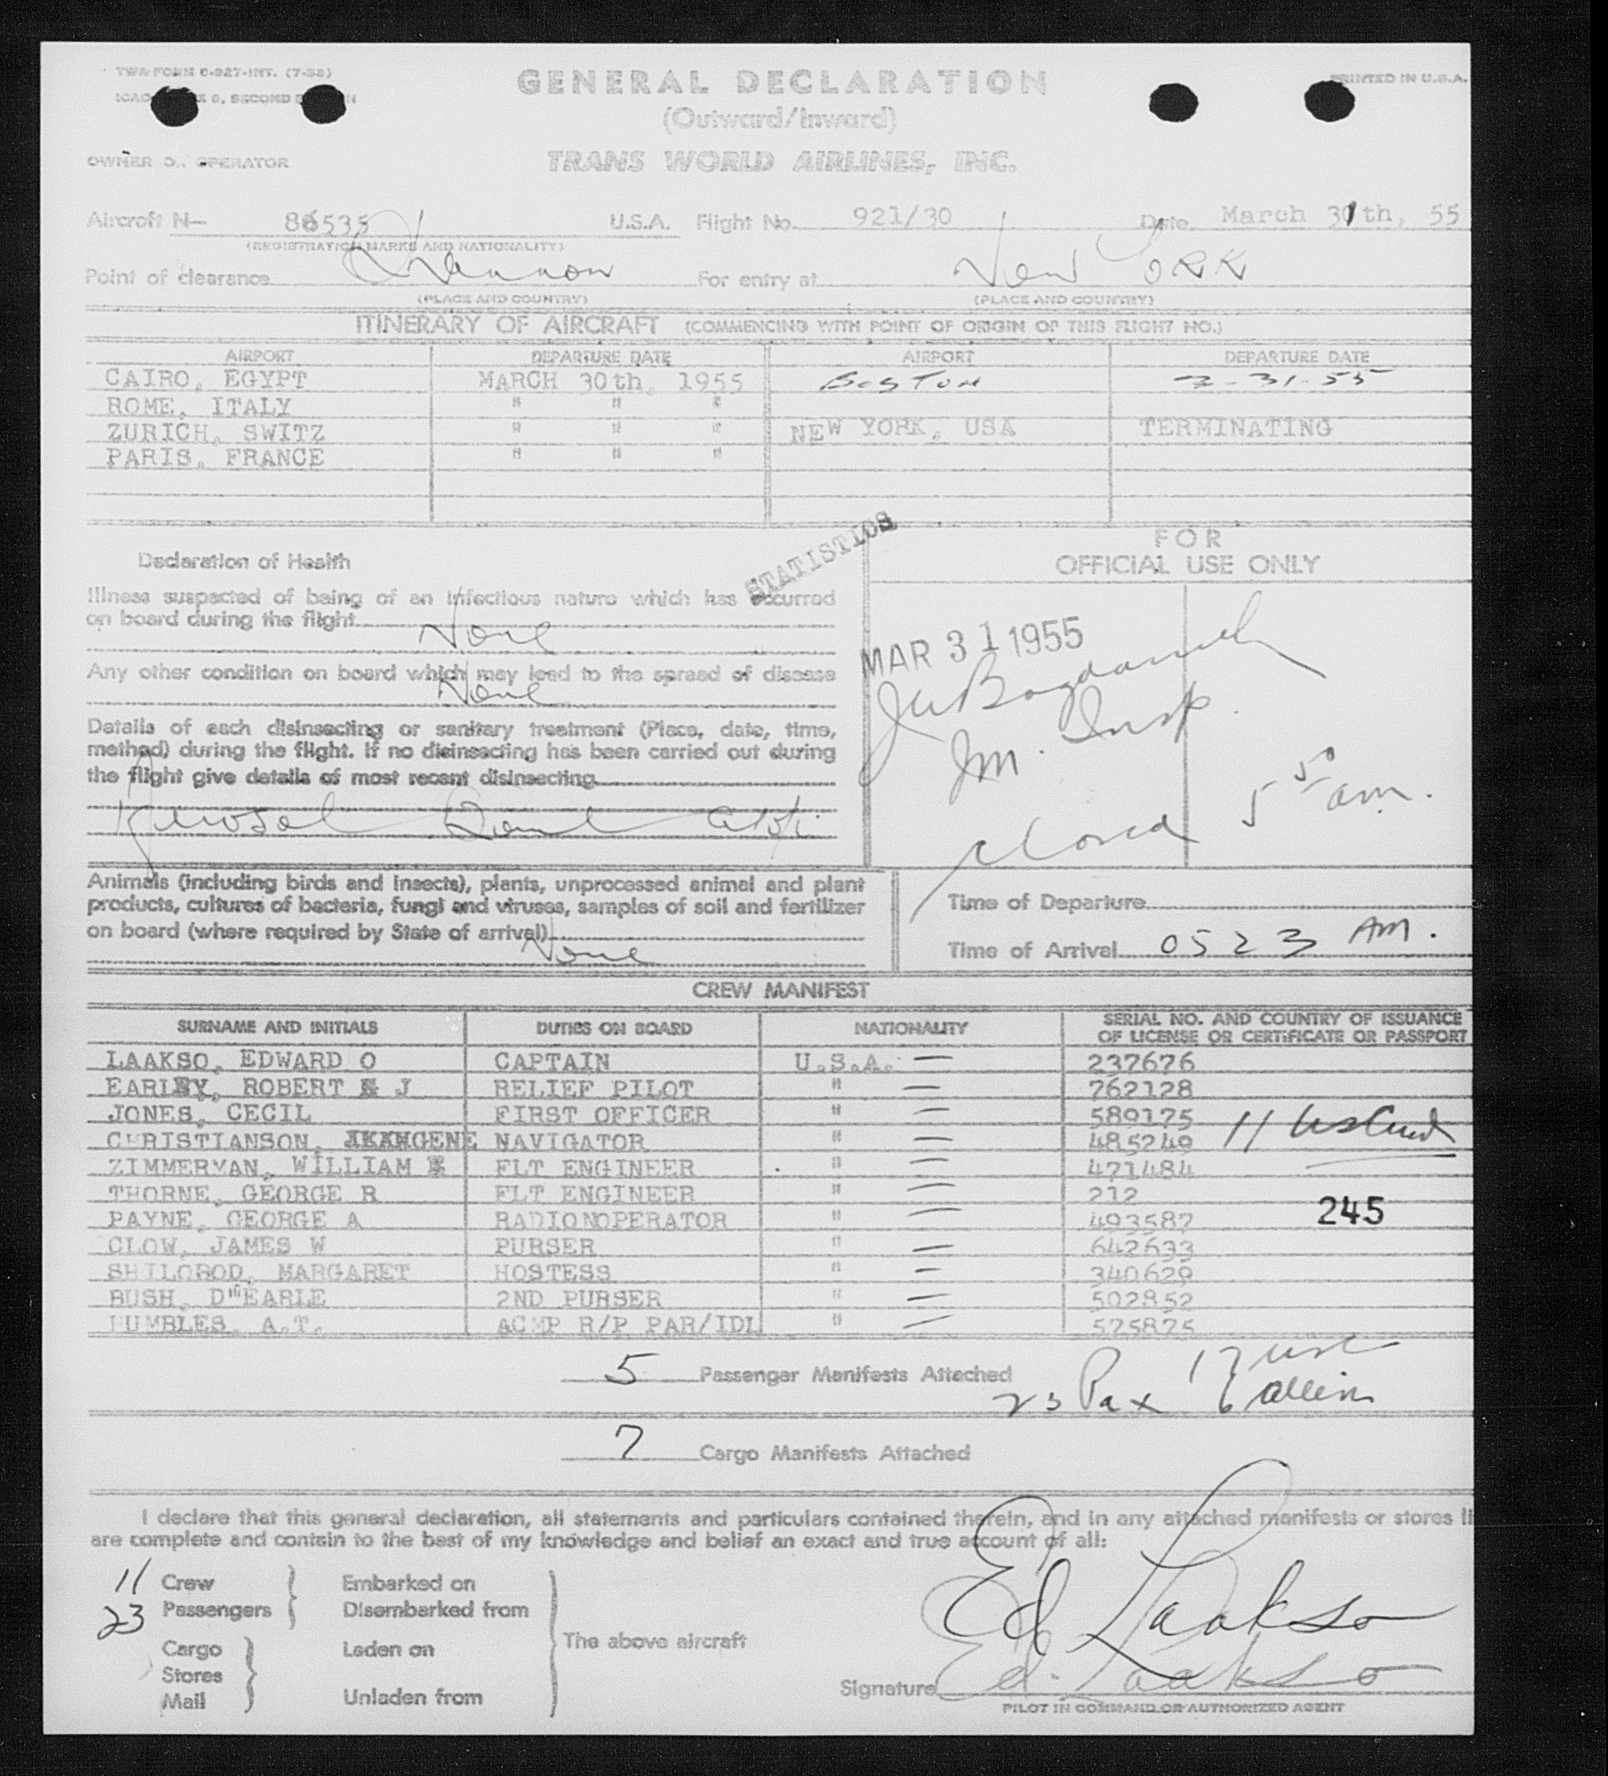 TWA FORM O-927-INT. (7-53)
PRINTED IN U.S.A.
GENERAL DECLARATION
(Outward/Inward)
OWNER OR OPERATOR
TRANS WORLD AIRLINES, INC.
Aircraft N— 86535 U.S.A. Flight No. 921/30 Date March 31th, 55
(REGISTRATION MARKS AND NATIONALITY)
Point of clearance Shannon For entry at New York
(PLACE AND COUNTRY) (PLACE AND COUNTRY)
ITINERARY OF AIRCRAFT (COMMENCING WITH POINT OF ORIGIN OF THIS FLIGHT NO.)
AIRPORT DEPARTURE DATE AIRPORT DEPARTURE DATE
CAIRO, EGYPT MARCH 30th, 1955 Boston 3-31-55
ROME, ITALY " " "
ZURICH, SWITZ " " " NEW YORK, USA TERMINATING
PARIS, FRANCE " " "
STATISTICS
FOR
OFFICIAL USE ONLY
Declaration of Health
Illness suspected of being of an infectious nature which has occurred
on board during the flight None
MAR 31 1955
Any other condition on board which may lead to the spread of disease
None
Im. Insp.
Details of each disinsecting or sanitary treatment (Place, date, time,
method) during the flight. If no disinsecting has been carried out during
the flight give details of most recent disinsecting
closed 5 50 am.
Animals (including birds and insects), plants, unprocessed animal and plant
products, cultures of bacteria, fungi and viruses, samples of soil and fertilizer
on board (where required by State of arrival)
None
Time of Departure
Time of Arrival 0523 AM.
CREW MANIFEST
SURNAME AND INITIALS DUTIES ON BOARD NATIONALITY SERIAL NO. AND COUNTRY OF ISSUANCE
OF LICENSE OR CERTIFICATE OR PASSPORT
LAAKSO, EDWARD O CAPTAIN U.S.A. — 237676
EARLEY, ROBERT J RELIEF PILOT " — 762128
JONES, CECIL FIRST OFFICER " — 589175
CHRISTIANSON, GENE NAVIGATOR " — 485249
11
ZIMMERMAN, WILLIAM FLT ENGINEER " — 471484
THORNE, GEORGE R FLT ENGINEER " — 212
245
PAYNE, GEORGE A RADIO OPERATOR " — 493587
CLOW, JAMES W PURSER " — 642633
SHILOBOD, MARGARET HOSTESS " — 340629
BUSH, D"EARLE 2ND PURSER " — 502852
HUMBLES, A.T. ACMP R/P PAR/IDL " — 525825
5 Passenger Manifests Attached
23 Pax 17 usc
6 aliens
7 Cargo Manifests Attached
I declare that this general declaration, all statements and particulars contained therein, and in any attached manifests or stores li
are complete and contain to the best of my knowledge and belief an exact and true account of all:
11 Crew Embarked on
23 Passengers Disembarked from
Cargo Laden on
Stores The above aircraft
Mail Unladen from
Ed Laakso
Signature Ed. Laakso
PILOT IN COMMAND OR AUTHORIZED AGENT